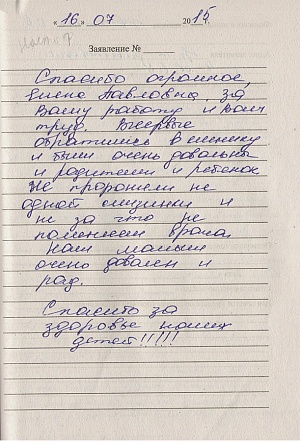 « 16 » 07 2015
Заявление №
Спасибо огромное,
Елена Павловна, за
Вашу работу и Ваш
труд. Впервые
обратились в клинику
и были очень довольны
и родители и ребенок
Не проронили не
одной слезинки и
не за что не
поменяем врача.
Наш малыш
очень доволен и
рад.
Спасибо за
здоровье наших
детей!!!!!